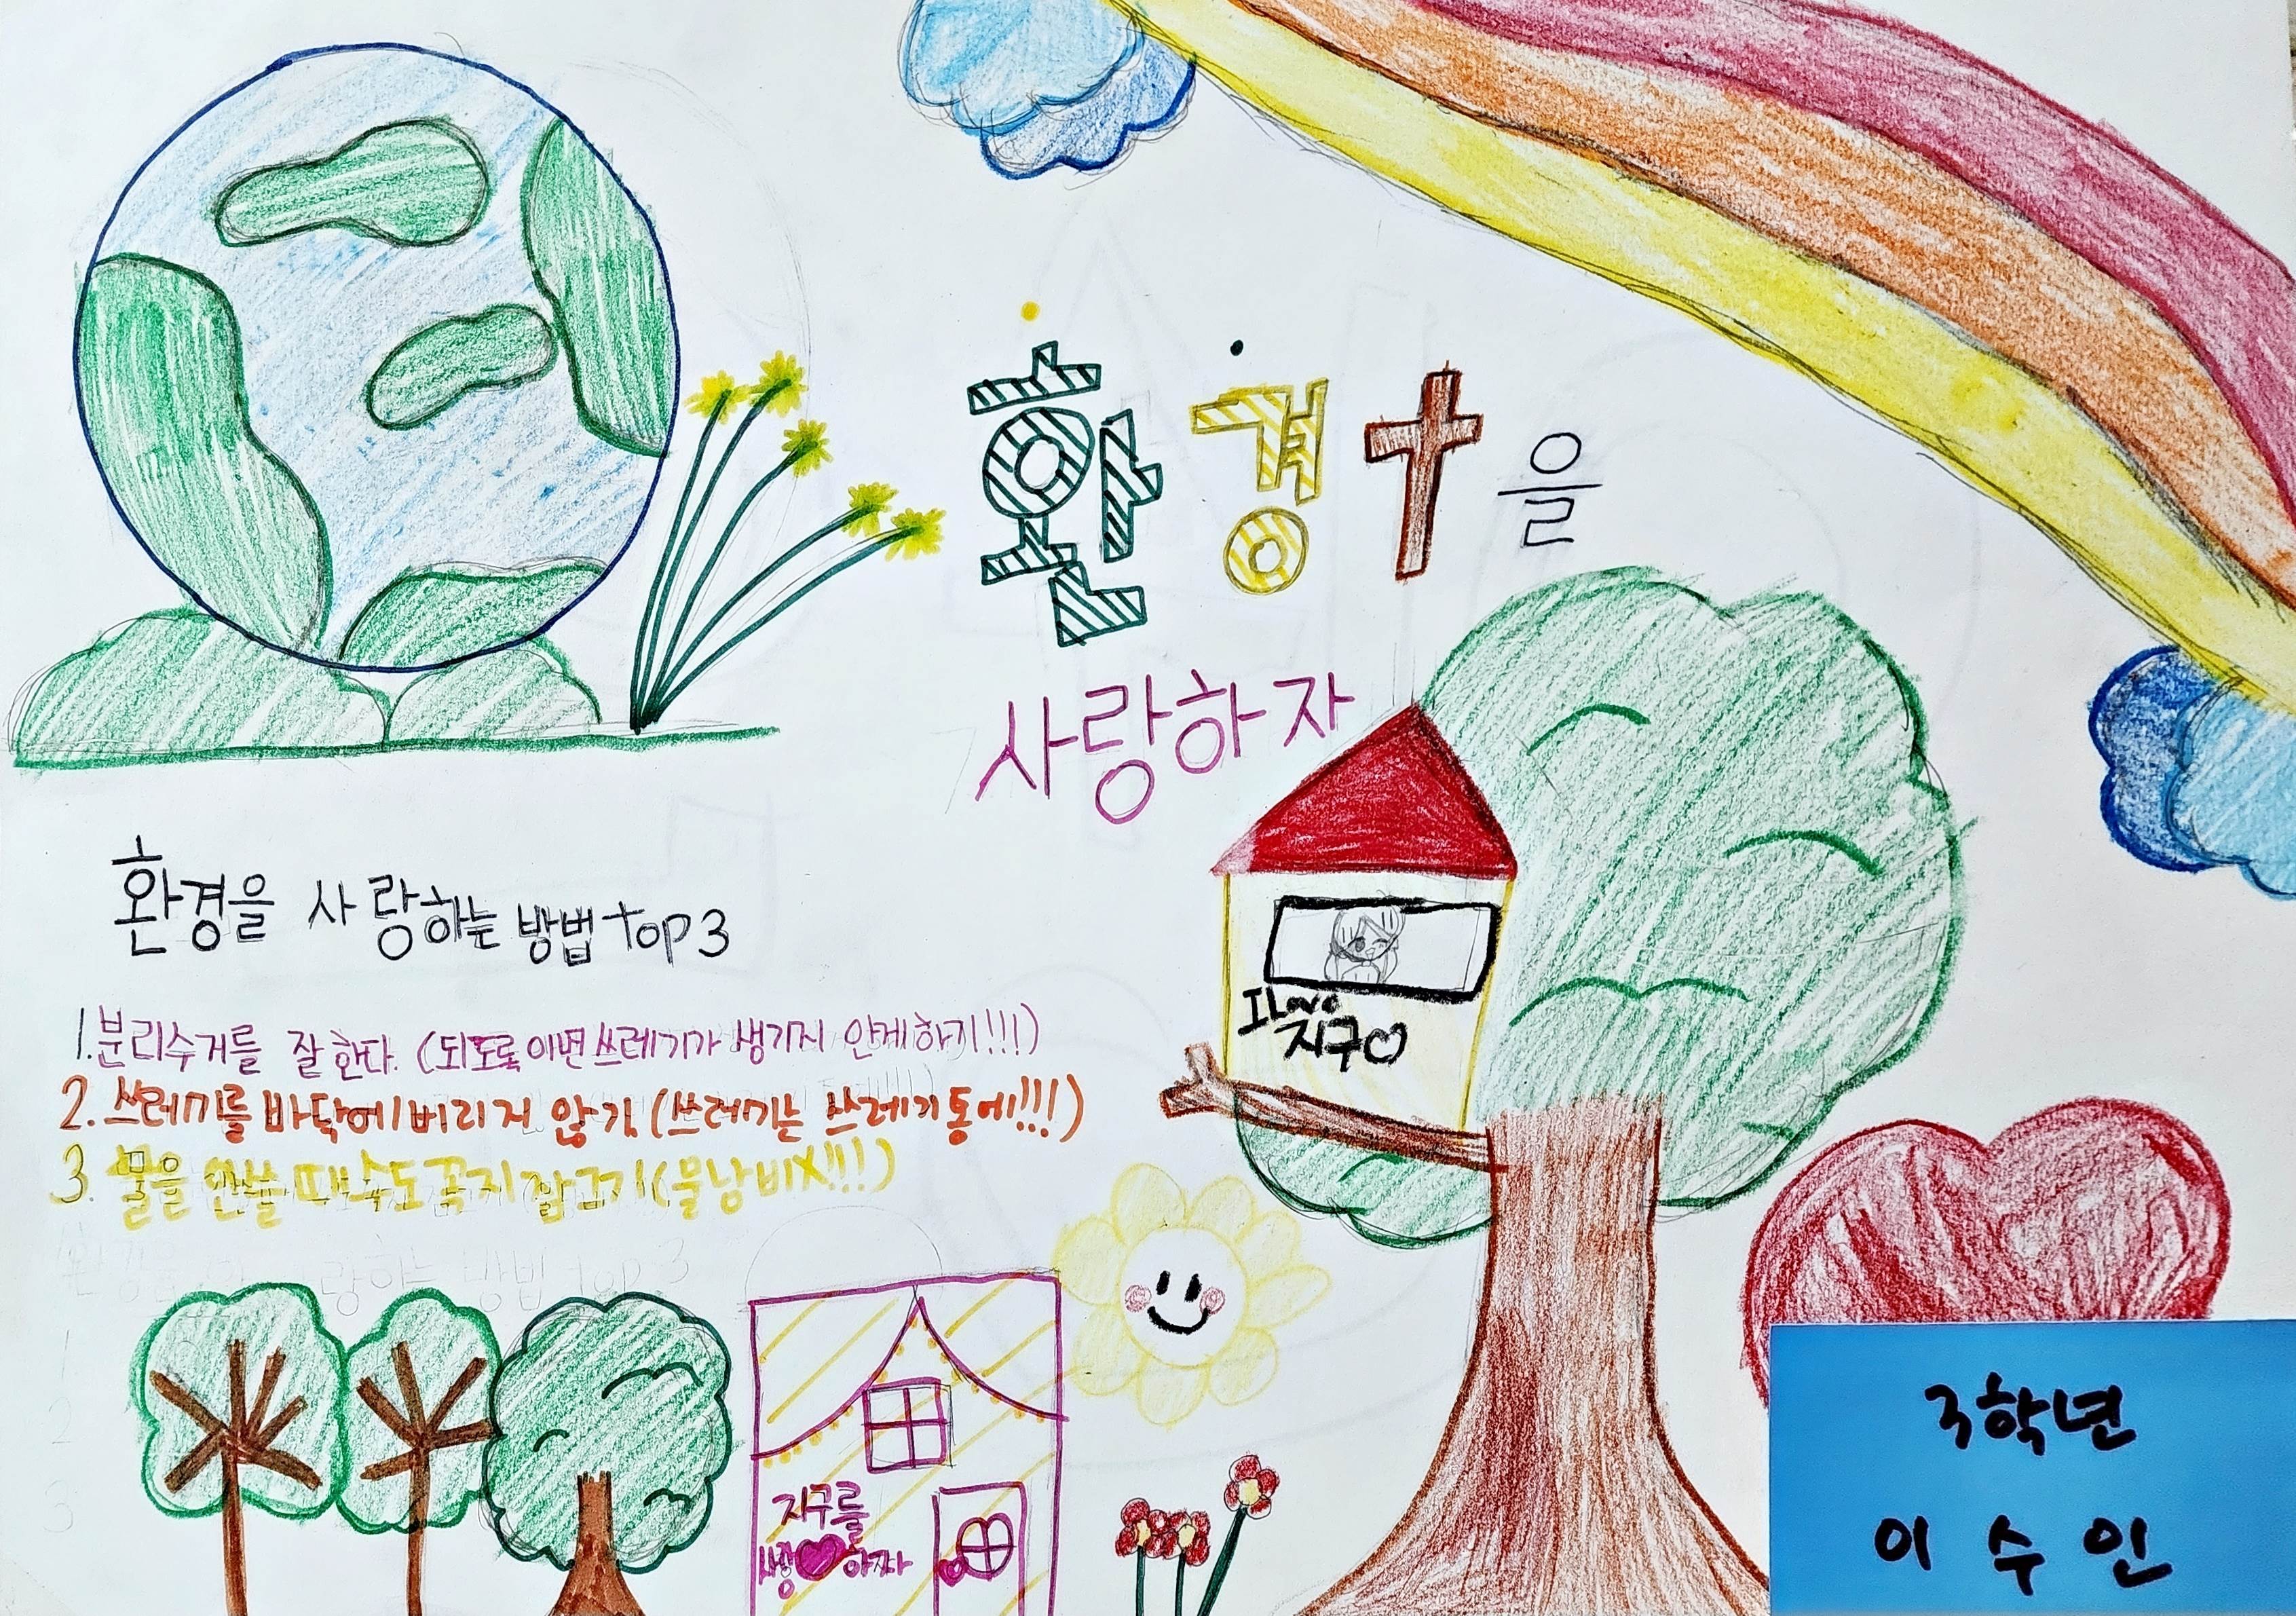 환경을
사랑하자
환경을 사랑하는 방법 top 3
1. 분리수거를 잘한다. (되도록이면 쓰레기가 생기지 안게하기!!!)
2. 쓰레기를 바닥에 버리지 않기 (쓰레기는 쓰레기통에!!!)
3. 물을 안쓸 때 수도꼭지 잠그기 (물낭비X!!!)
I Love
지구♡
지구를
사랑♥하자
3학년
이수인